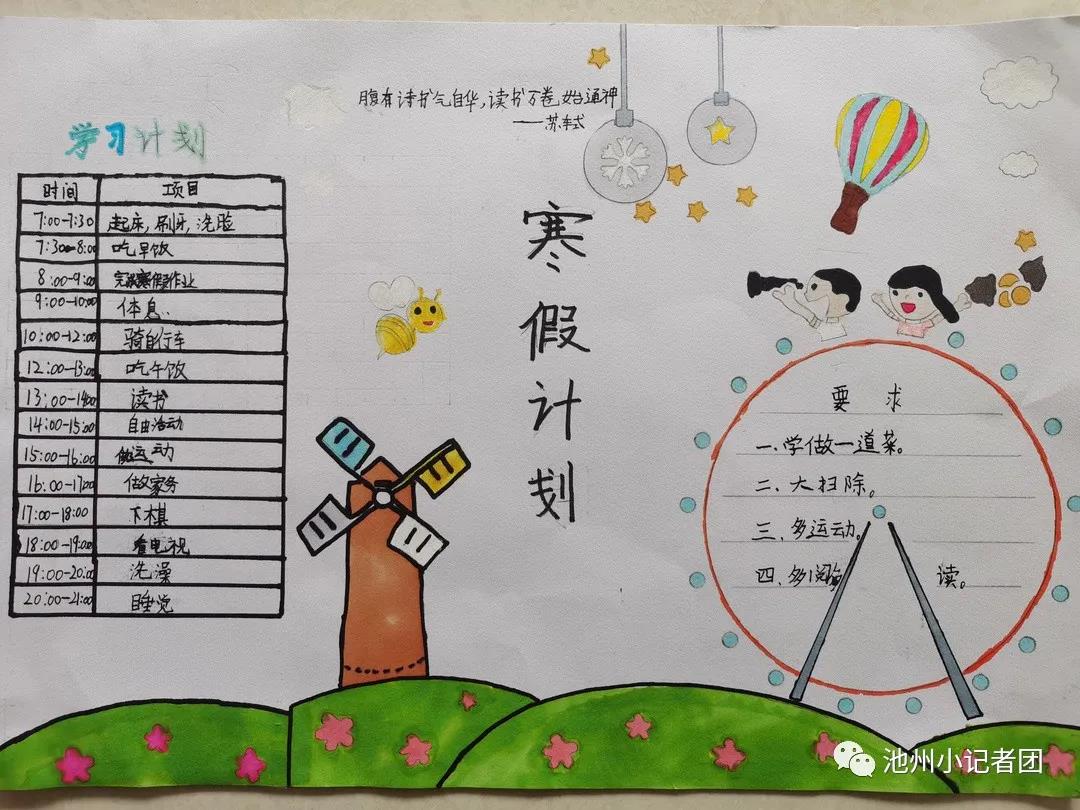 腹有诗书气自华,读书万卷始通神
——苏轼
学习计划
时间 项目
7:00-7:30 起床,刷牙,洗脸
7:30-8:00 吃早饭
8:00-9:00 完成寒假作业
9:00-10:00 休息..
10:00-12:00 骑自行车
12:00-13:00 吃午饭
13:00-14:00 读书
14:00-15:00 自由活动
15:00-16:00 做运动
16:00-17:00 做家务
17:00-18:00 下棋
18:00-19:00 看电视
19:00-20:00 洗澡
20:00-21:00 睡觉
寒假计划
要求
一.学做一道菜。
二、大扫除。
三、多运动。
四、多阅读。
池州小记者团